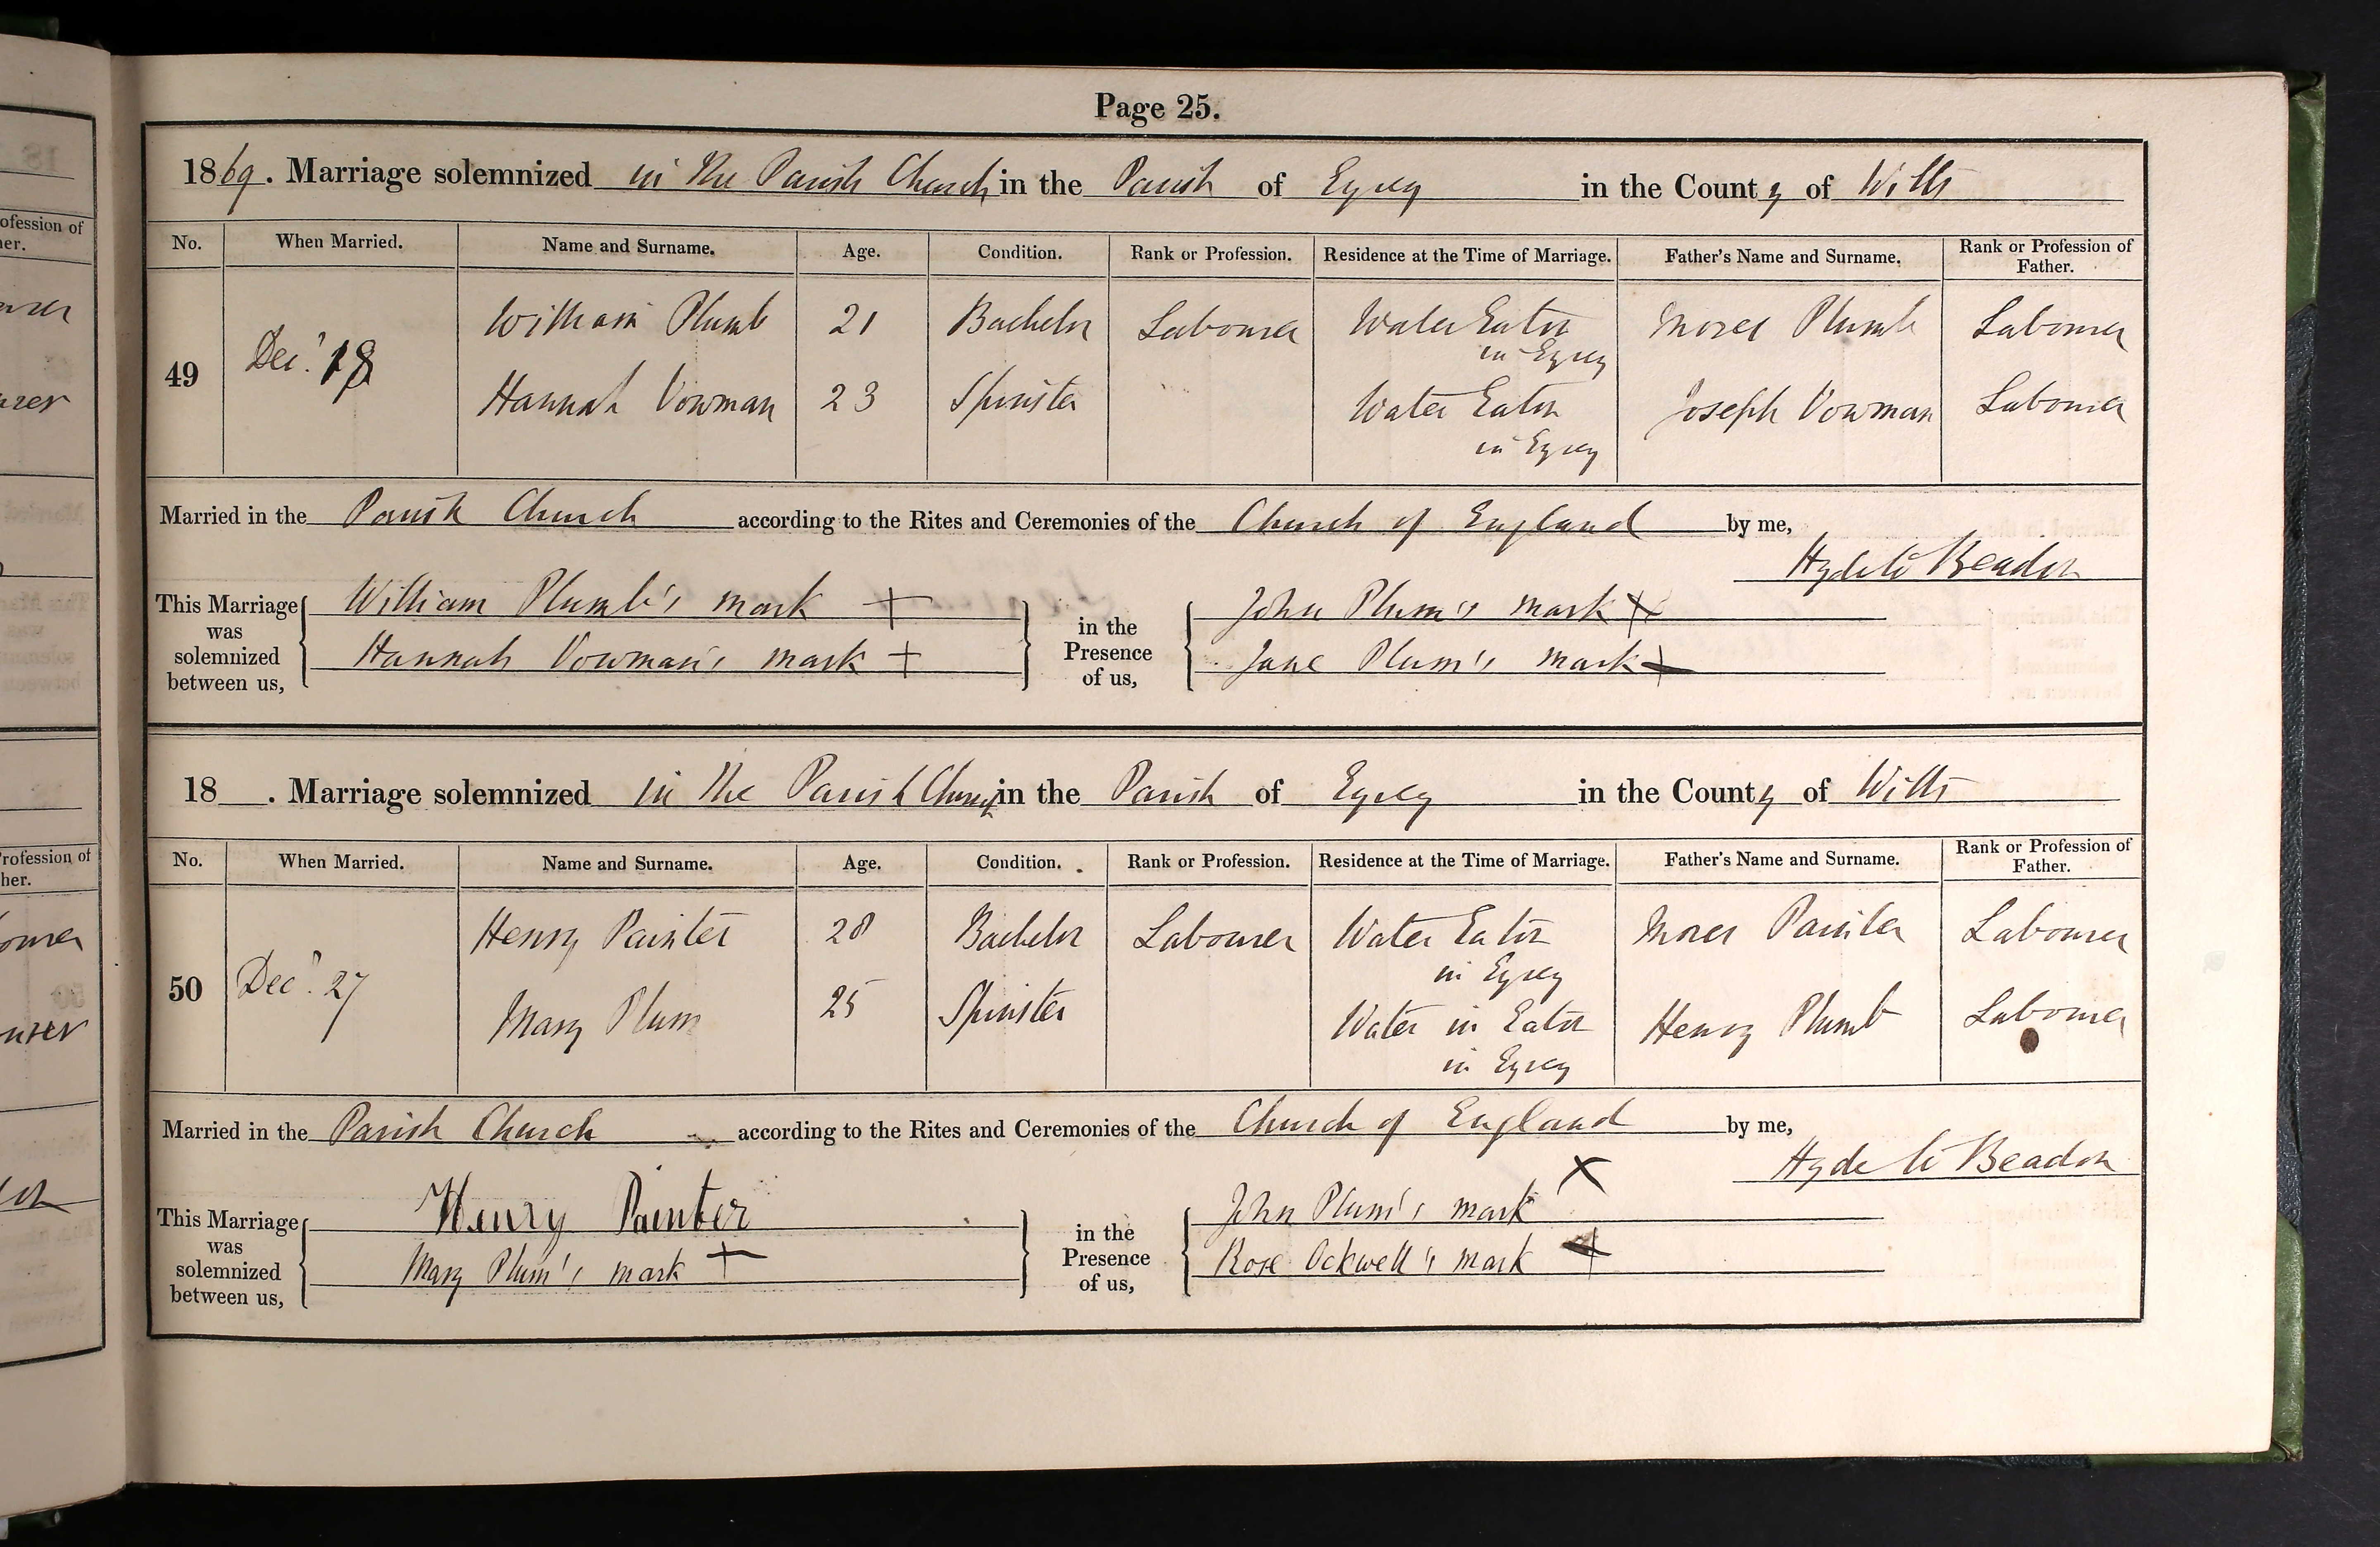 Page 25.
1869. Marriage solemnized in the Parish Church in the Parish of Eysey in the County of Wilts
No. When Married. Name and Surname. Age. Condition. Rank or Profession. Residence at the Time of Marriage. Father's Name and Surname. Rank or Profession of Father.
49 Decr. 18 William Plumb 21 Bachelor Labourer Water Eaton in Eysey Moses Plumb Labourer
Hannah Vowman 23 Spinster Water Eaton in Eysey Joseph Vowman Labourer
Married in the Parish Church according to the Rites and Ceremonies of the Church of England by me,
Hyde W Beadon
This Marriage was solemnized between us,
William Plumb's mark +
Hannah Vowman's mark +
in the Presence of us,
John Plum's mark X
Jane Plum's mark +
18 . Marriage solemnized in the Parish Church in the Parish of Eysey in the County of Wilts
No. When Married. Name and Surname. Age. Condition. Rank or Profession. Residence at the Time of Marriage. Father's Name and Surname. Rank or Profession of Father.
50 Decr. 27 Henry Painter 28 Bachelor Labourer Water Eaton in Eysey Moses Painter Labourer
Mary Plum 25 Spinster Water in Eaton in Eysey Henry Plumb Labourer
Married in the Parish Church according to the Rites and Ceremonies of the Church of England by me,
Hyde W Beadon
This Marriage was solemnized between us,
Henry Painter
Mary Plum's mark +
in the Presence of us,
John Plum's mark X
Rose Ockwell's mark +